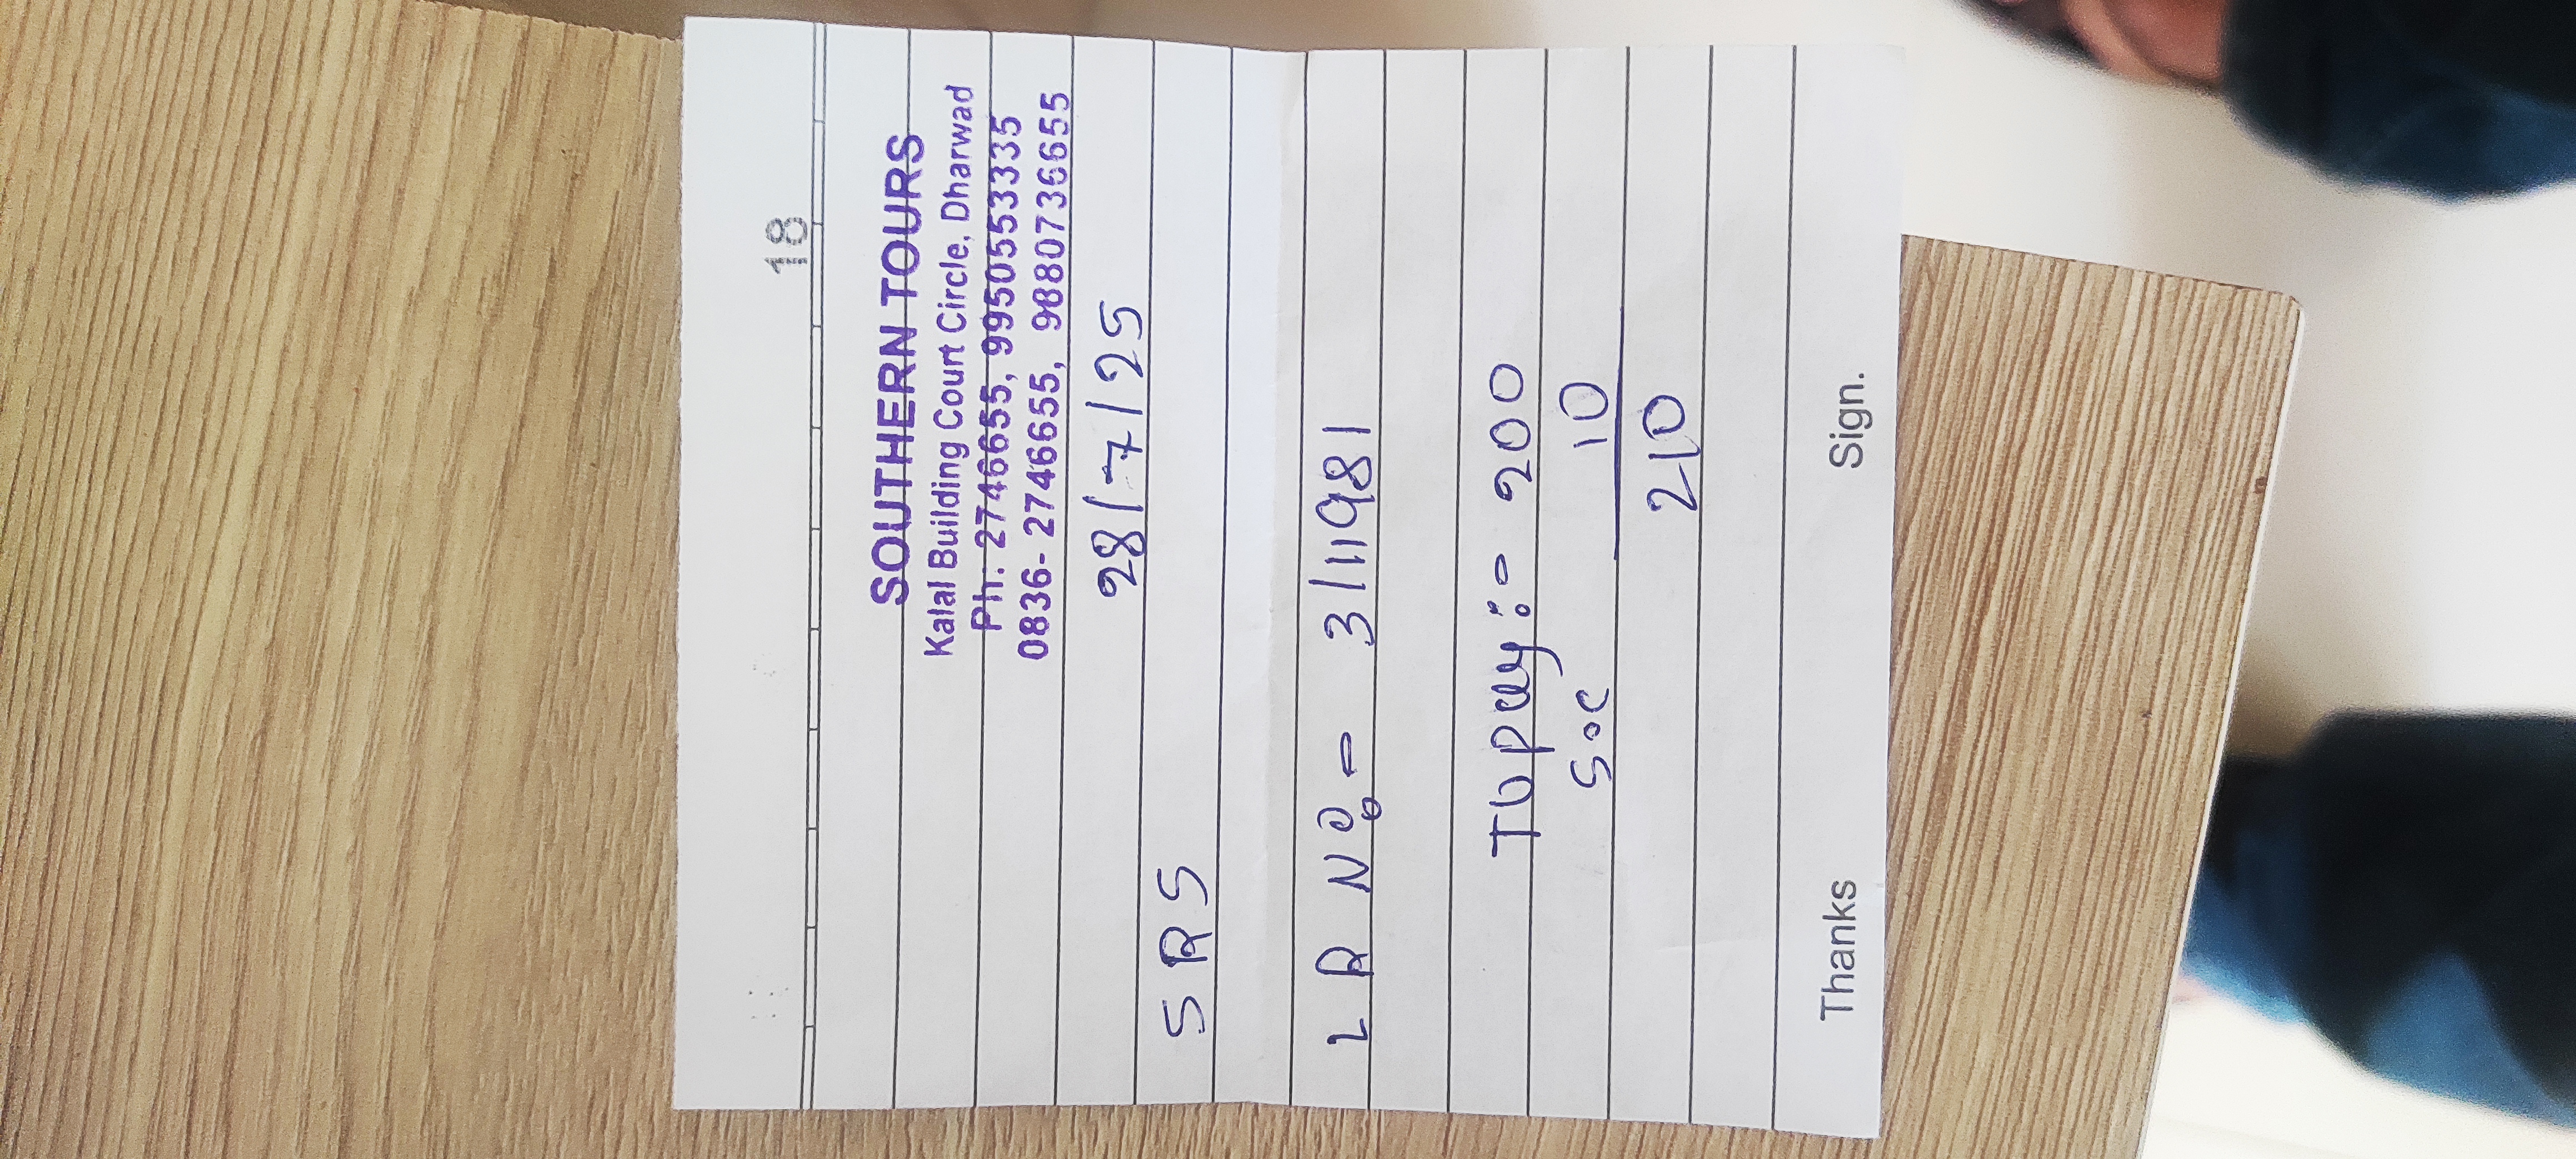 18
SOUTHERN TOURS
Kalal Building Court Circle, Dharwad
Ph: 2746655, 9950553335
0836- 2746655, 9880736655
28/7/25
SRS
LR No:- 3/11981
To pay:- 200
Soc 10
210
Thanks Sign.